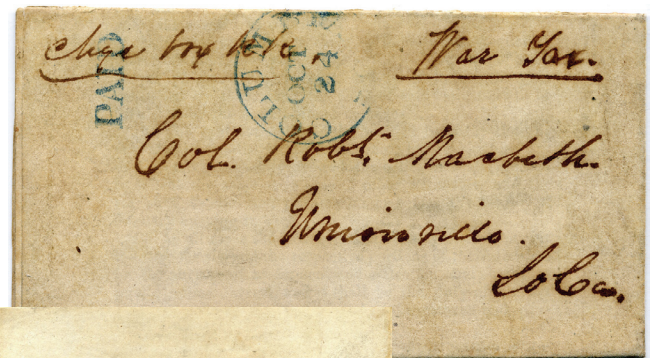 Chge box War Tax.
PAID
COLUM OCT 24
Col. Robt. Macbeth.
Unionville.
So Ca.